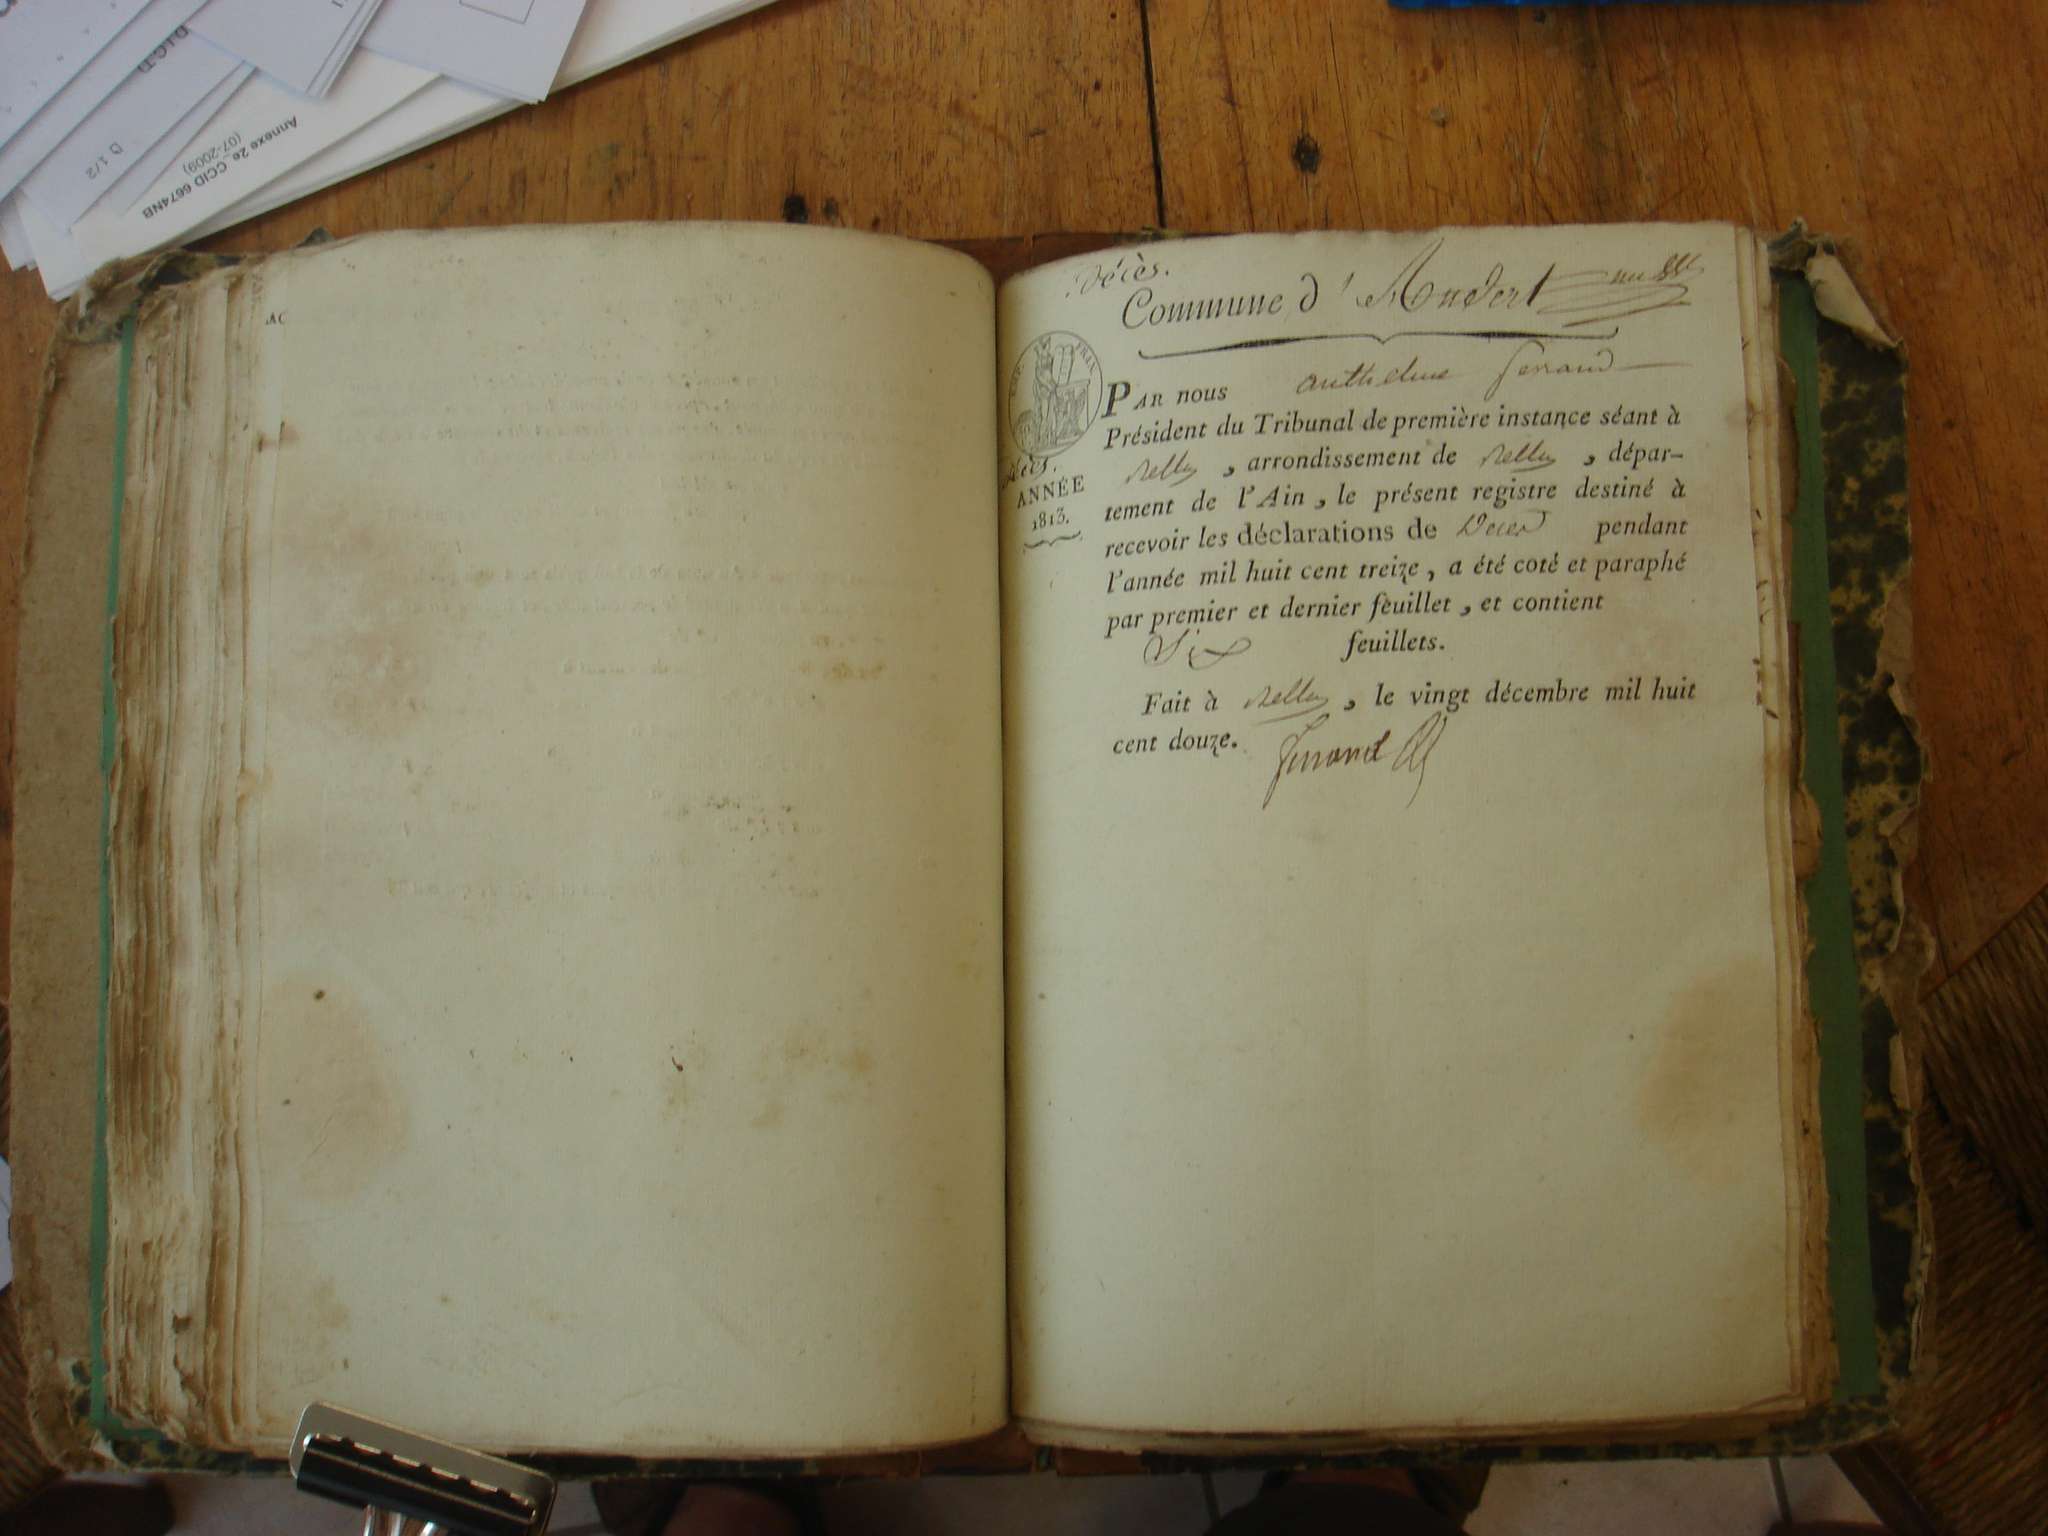 DLC-TI
D 1/2
Annexe 2e_CCID 6674NB
(07-2009)
Décès.
Commune d' Andert
PAR nous anthelme ferrand
Président du Tribunal de première instance séant à
Belley, arrondissement de Belley, dépar-
tement de l'Ain, le présent registre destiné à
recevoir les déclarations de Décès pendant
l'année mil huit cent treize, a été coté et paraphé
par premier et dernier feuillet, et contient
Six feuillets.
Fait à Belley, le vingt décembre mil huit
cent douze.
ferrand
Décès.
ANNÉE
1813.